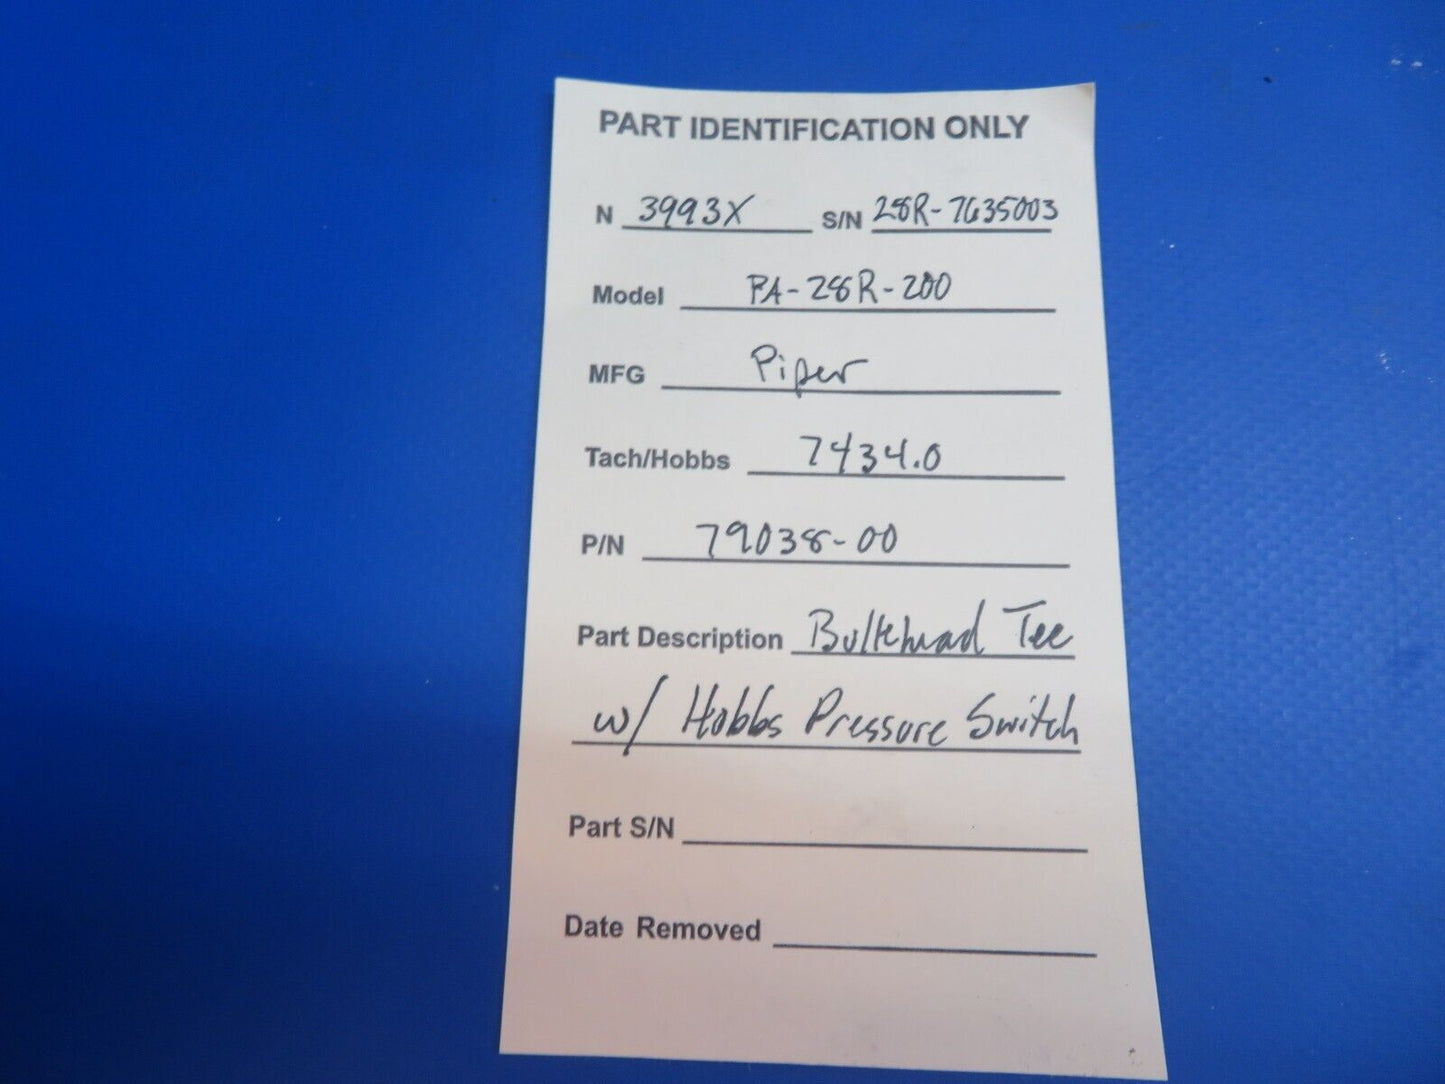 PART IDENTIFICATION ONLY
N 3993X S/N 28R-7635003
Model PA-28R-200
MFG Piper
Tach/Hobbs 7434.0
P/N 79038-00
Part Description Bulkhead Tee
w/ Hobbs Pressure Switch
Part S/N
Date Removed